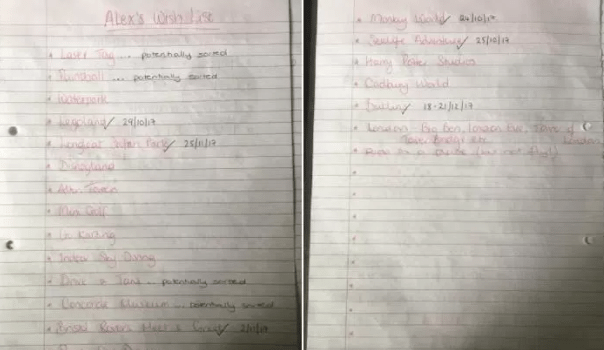 Alex's Wish List
• Laser Tag ... potentially sorted
• Paintball ... potentially sorted
• Waterpark
• Legoland ✓ 29/10/17
• Longleat Safari Park ✓ 25/11/17
• Disneyland
• Alton Towers
• Mini Golf
• Go Karting
• Indoor Sky Diving
• Drive a Tank ... potentially sorted
• Museum ... potentially sorted
• Bristol Rovers ✓ 2/11/17
• Monkey World ✓ 24/10/17
• Sealife Adventure ✓ 25/10/17
• Harry Potter Studios
• Cadbury World
• ✓ 18-21/12/17
• London Big Ben, London Eye, Tower of
Tower Bridge etc London
• in a